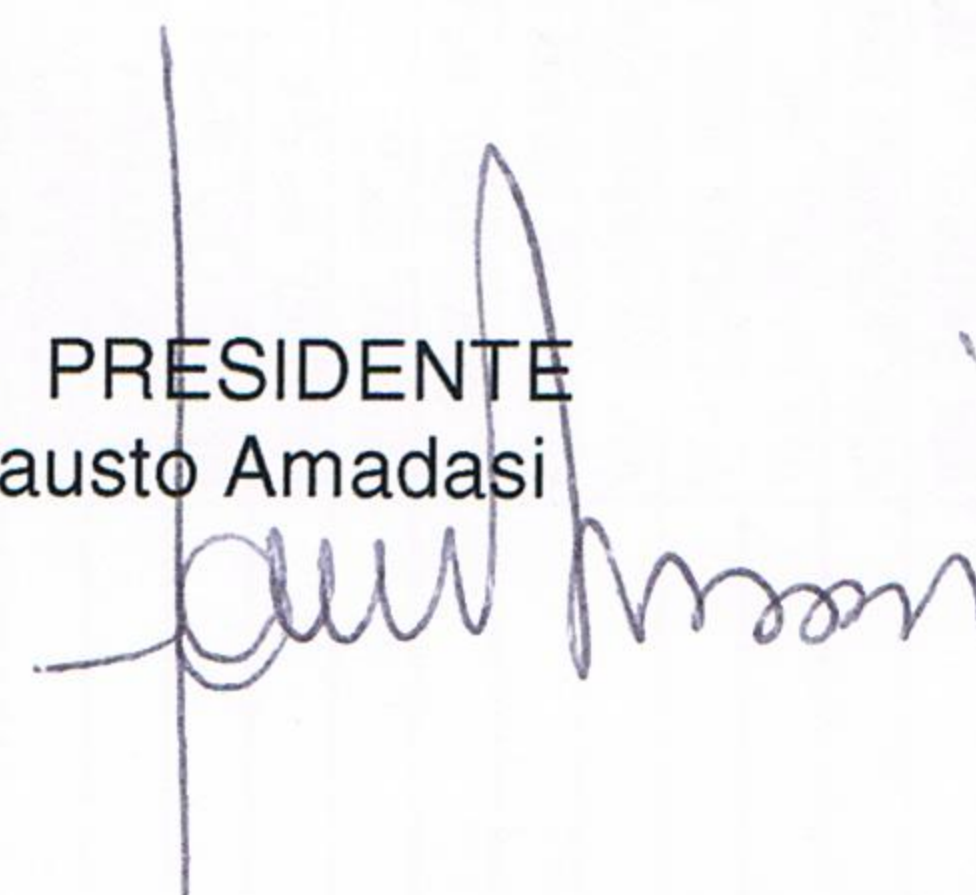 PRESIDENTE
austo Amadasi